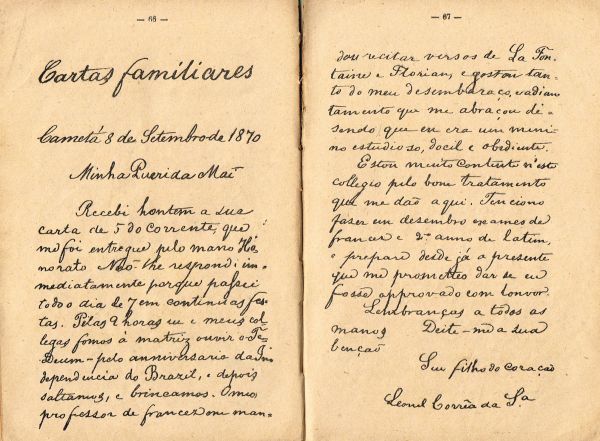 — 66 —
Cartas familiares
Cametá 8 de Setembro de 1870
Minha Querida Mãi
Recebi hontem a sua
carta de 5 do corrente, que
me foi entregue pelo mano Ho-
norato Não lhe respondi im-
mediatamente porque passei
todo o dia de 7 em continuas fes-
tas. Pelas 9 horas eu e meus col-
legas fomos á matriz ouvir o Te-
Deum pelo anniversario da In-
dependencia do Brazil, e depois
saltamos, e brincamos. O meu
professor de francez me man-
— 67 —
dou recitar versos de La Fon-
taine e Florian, e gostou tan-
to do meu desembaraço, e adian-
tamento que me abraçou di-
sendo que eu era um meni-
no estudioso, docil e obediente.
Estou muito contente n'este
collegio pelo bom tratamento
que me dão aqui. Tenciono
fazer em desembro exames de
francez e 2º anno de latim,
e prepare desde já o presente
que me prometteo dar se eu
fosse approvado com louvor.
Lembranças a todos as
manos Deite-me a sua
benção
Seu filho do coração
Leonel Corrêa da Sª